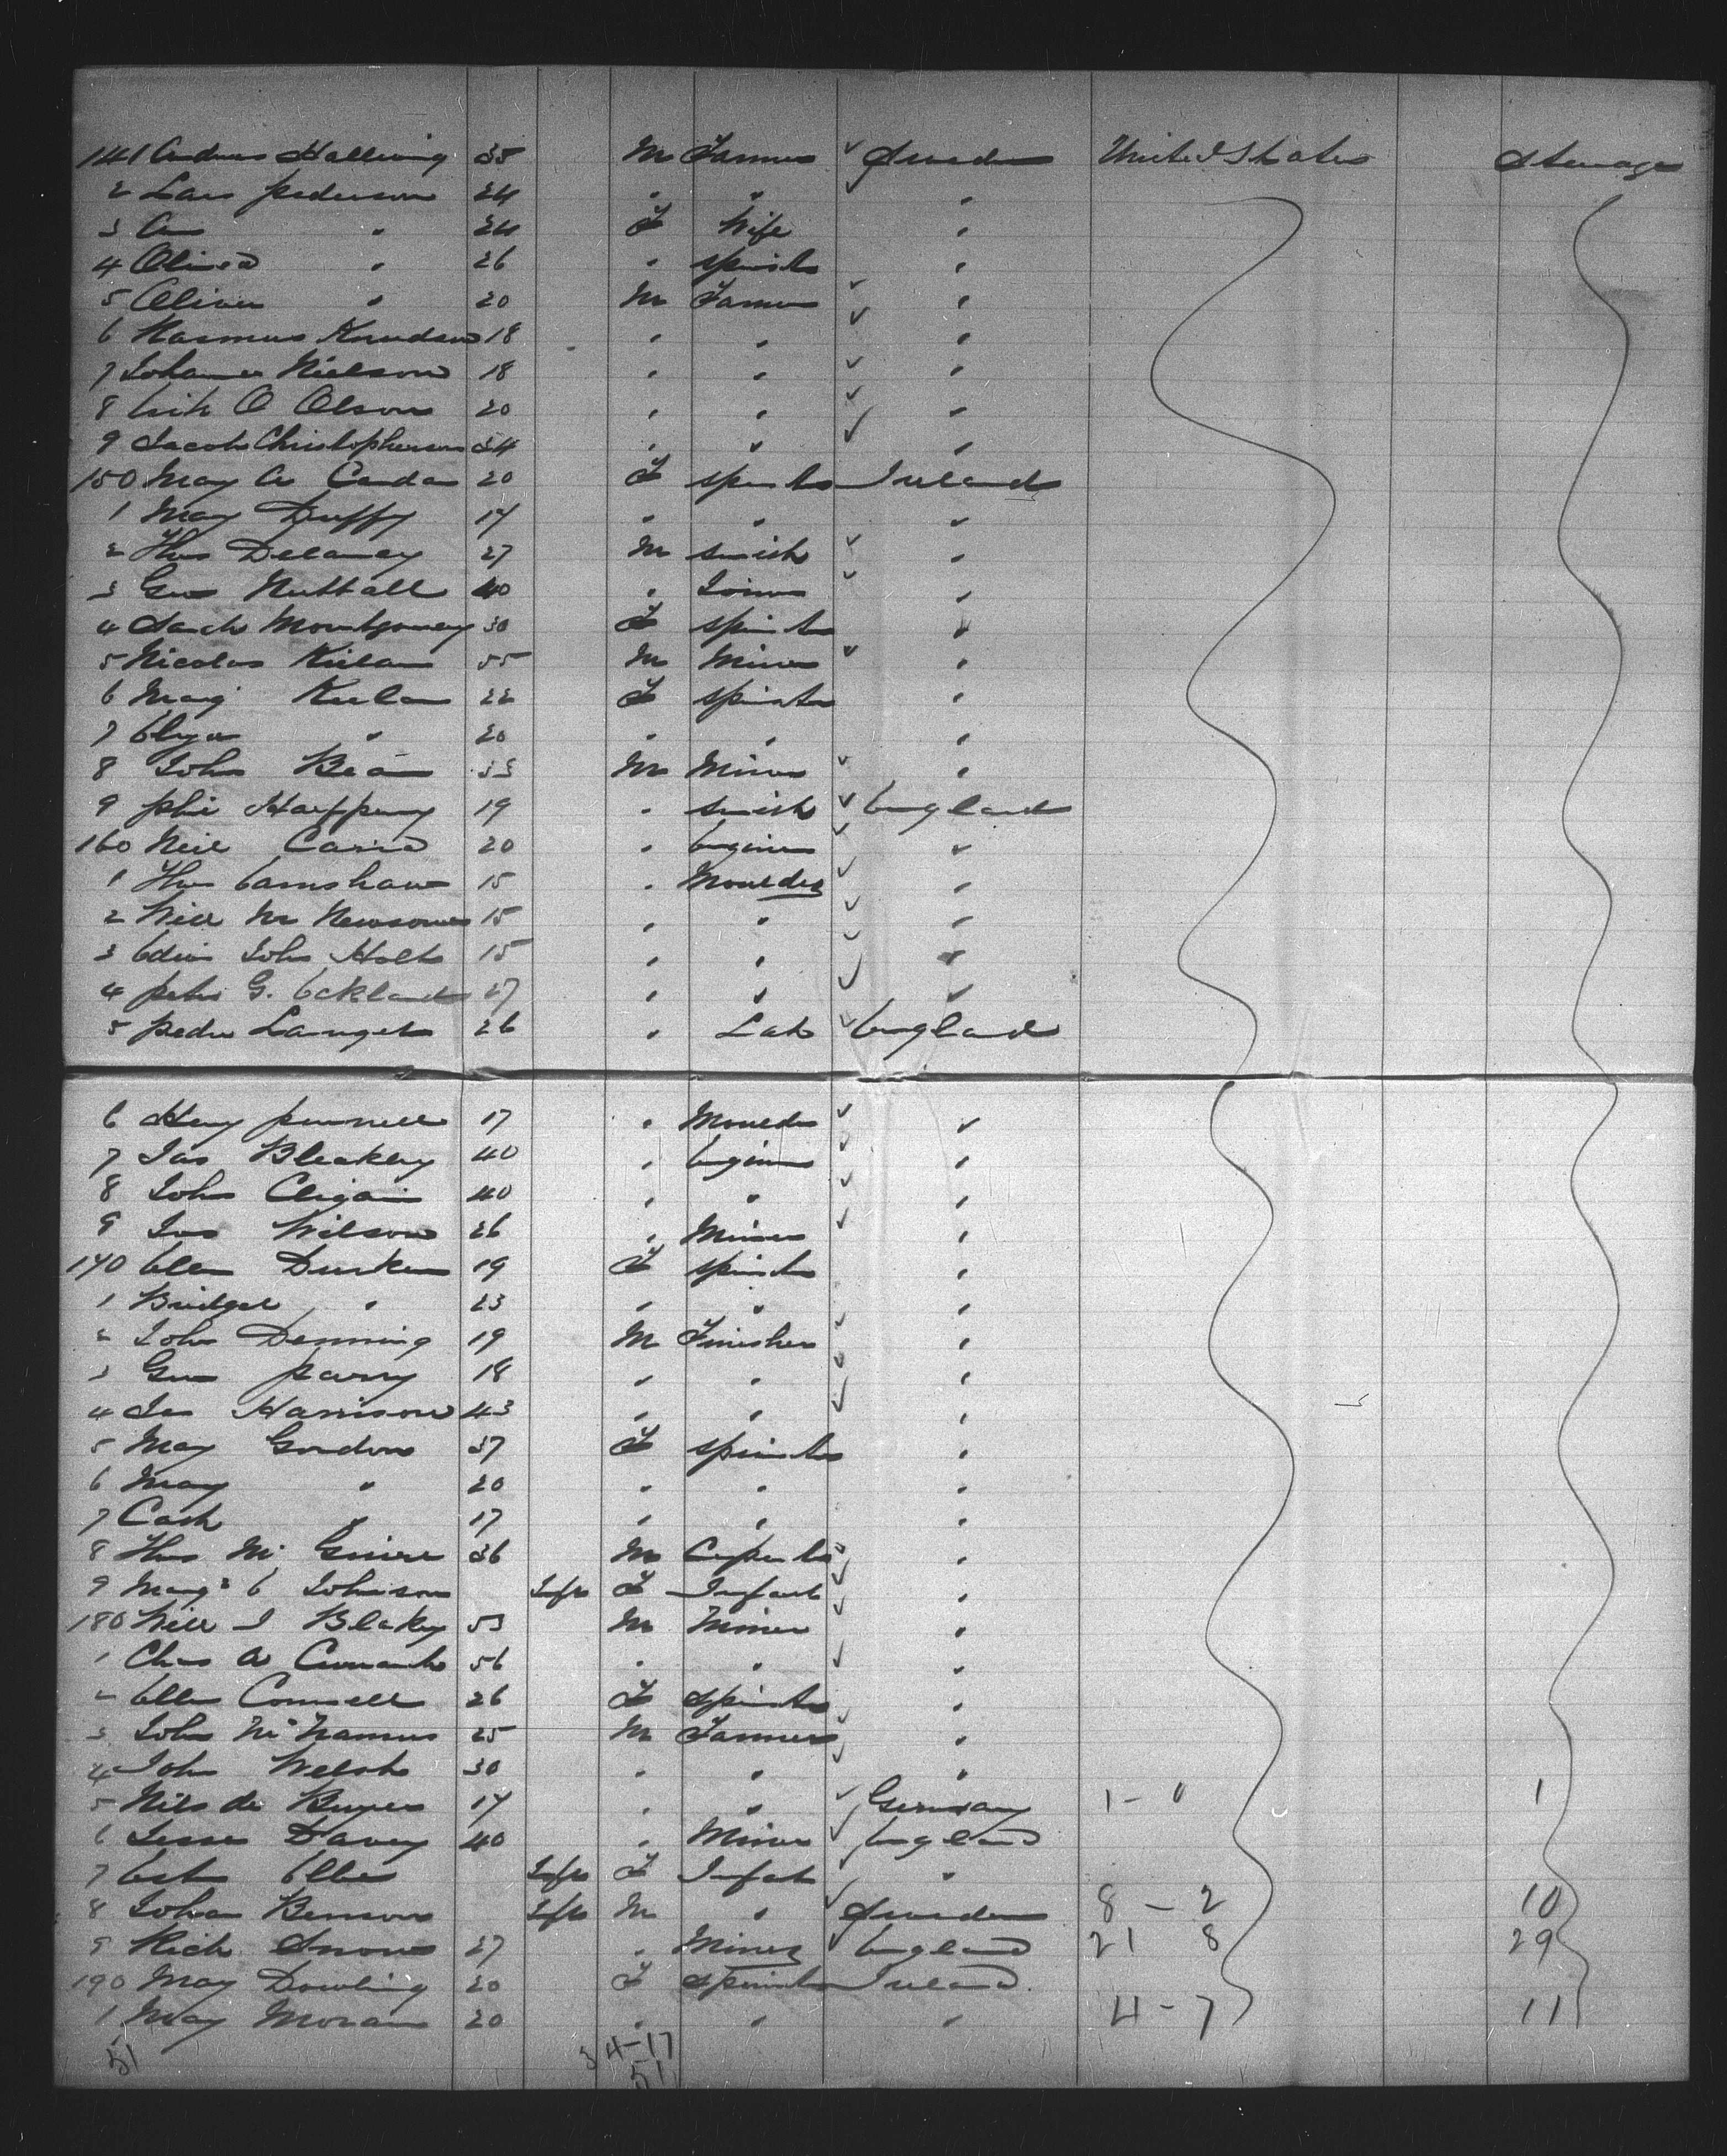 141 Andreas Hallering 35 M Farmer ✓ Sweden United States Steerage
2 Lars Pederson 24 " " ✓ "
3 An " 24 F Wife "
4 " 26 " Spinster "
5 Oliver " 20 M Farmer ✓ "
6 Rasmus Knudson 18 " " ✓ "
7 Johannes Nielson 18 " " ✓ "
8 Erik O Olson 20 " " ✓ "
9 Jacob Christopherson 34 " " ✓ "
150 Mary A 20 F Spinster Ireland
1 Mary Duffy 17 " " "
2 Thos Delaney 27 M Smith ✓ "
3 Geo Nuttall 40 " Joiner ✓ "
4 Sarah Montgomery 30 F Spinster "
5 Nicolas 55 M Miner ✓ "
6 Marg 22 F Spinster "
7 Eliza " 20 " " "
8 John Bean 33 M Miner ✓ "
9 19 " Smith ✓ England
160 Neil 20 " Engineer ✓ "
1 Thos Earnshaw 15 " Moulder ✓ "
2 Will M Newsome 15 " " ✓ "
3 Edwin John Holt 15 " " ✓ "
4 Peter G. Eckland 27 " " ✓ "
5 26 " Lab ✓ England
6 Hery Pennell 17 " Moulder ✓ "
7 Jas Bleakley 40 " Engineer ✓ "
8 John 40 " " ✓ "
9 Jas Wilson 26 " Miner ✓ "
170 Ellen Durken 19 F Spinster "
1 Bridget " 23 " " "
2 John Denning 19 M Finisher ✓ "
3 Geo Parry 18 " " ✓ "
4 Jas Harrison 43 " " ✓ "
5 Mary Gordon 37 F Spinster "
6 Mary " 20 " " "
7 Cath " 17 " " "
8 Thos 36 M Carpenter ✓ "
9 Margt E Johnson Inft F Infant ✓ "
180 Will J Blakey 53 M Miner ✓ "
1 Chas A 56 " " ✓ "
2 Ellen Connell 26 F Spinster "
3 John McNamus 25 M Farmer ✓ "
4 John Welsh 30 " " ✓ "
5 Nils de 17 " " ✓ Germany 1 - 0 1
6 Jesse Davey 40 " Miner ✓ England
7 Inft F Infant ✓ "
8 Johan Benson Inft M " ✓ Sweden 8 - 2 10
9 Rich Snow 27 " Miner ✓ England 21 8 29
190 May Dowling 20 F Spinster Ireland
1 May Moran 20 " " " 4 - 7 11
51 34-17
51